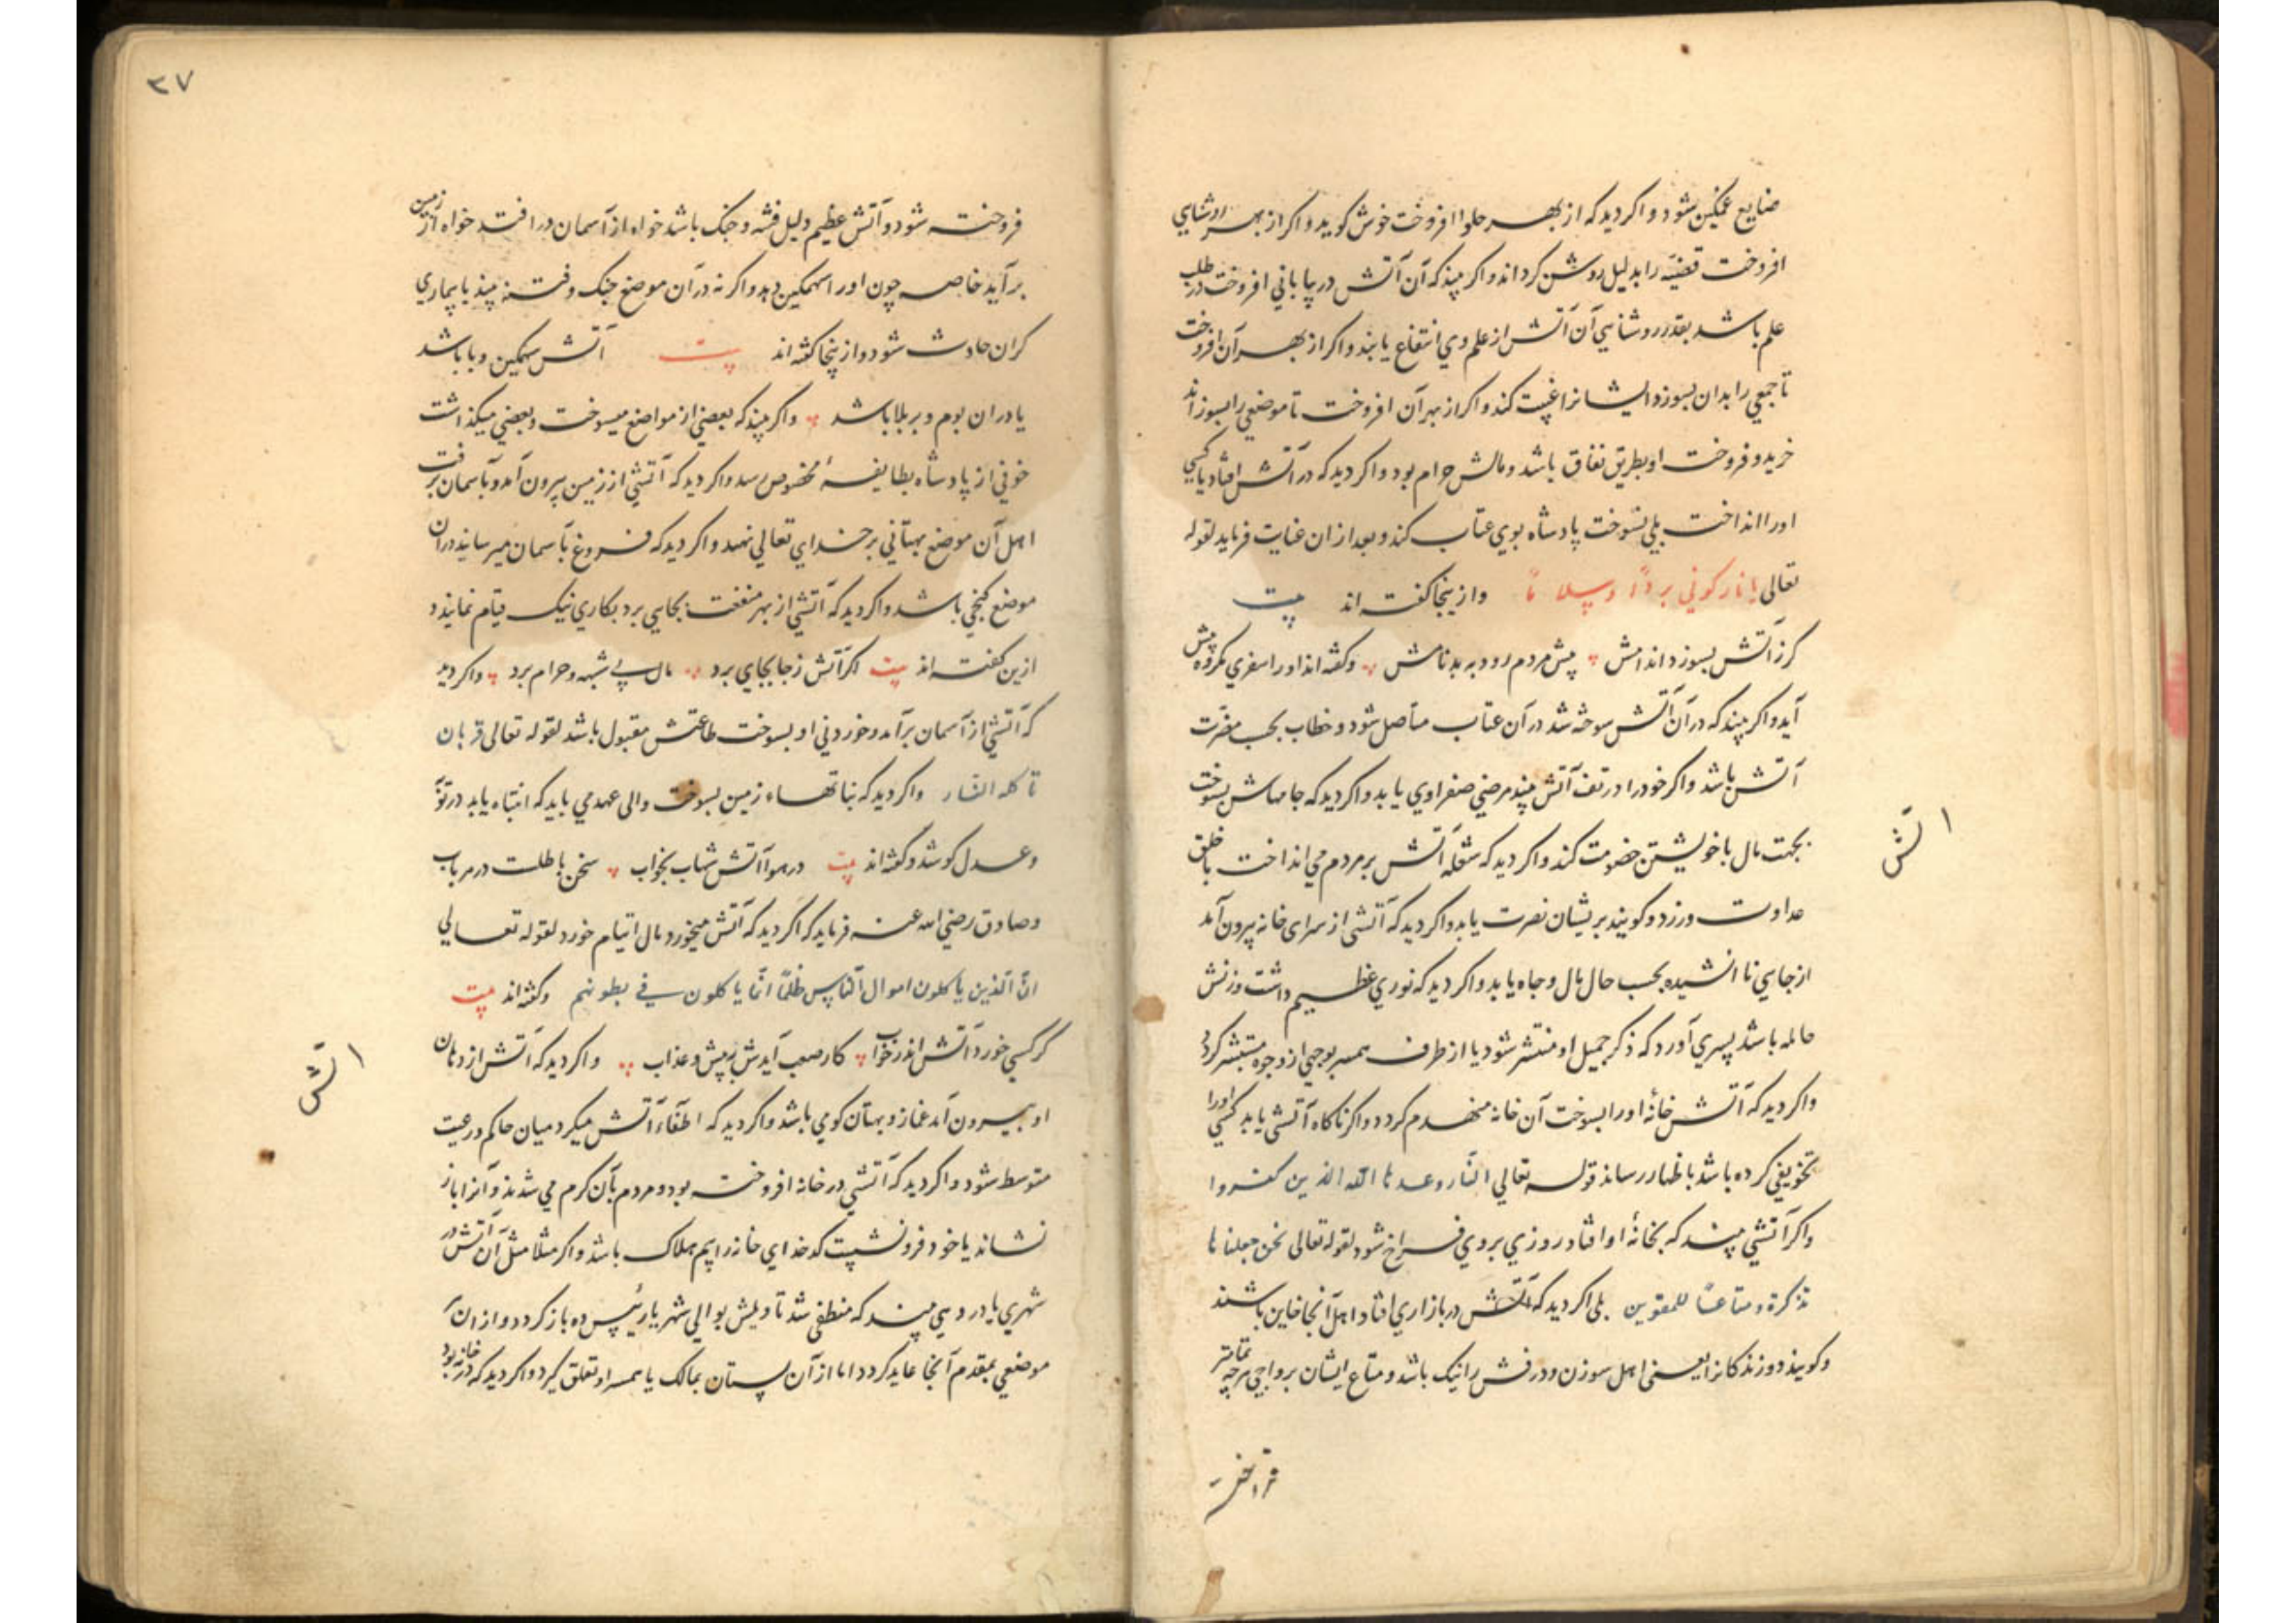 ضایع غمکین شود و اکر دید که از بهر حلوا افروخت خوش کوید و اکر از بهر روشنایی
افروخت قضیه را بدلیل روشن کرداند و اکر بیند که آن آتش در بیابانی افروخت در طلب
علم باشد بقدر روشنایی آن آتش از علم وی انتفاع یابند و اکر از بهر آن افروخت
تا جمعی را بدان بسوزد ایشانرا غیبت کند و اکر از بهر آن افروخت تا موضعی را بسوزاند
خرید و فروخت او بطریق نفاق باشد و مالش حرام بود و اکر دید که در آتش افتاد یا کسی
اورا انداخت بلی نسوخت پادشاه بوی عتاب کند و بعد از ان عنایت فرماید لقوله
تعالی یا نار کونی بردًا وسلامًا وازینجا کفته اند بیت
کر ز آتش بسوزد اندامش پیش مردم رود به بد نامش وکفته اند اورا سفری مکروه پیش
آید و اکر بیند که در آن آتش سوخته شد در آن عتاب مستأصل شود و خطاب بحسب مضرت
آتش باشد و اکر خود را در تف آتش بیند مرضی صفراوی یابد و اکر دید که جامهاش بسوخت
بجهت مال با خویشتن خصومت کند و اکر دید که شعله آتش بر مردم می انداخت با خلق
عداوت ورزد و کویند بریشان نصرت یابد و اکر دید که آتشی از سرای خانه بیرون آمد
از جایی نا اندیشیده بحسب حال مال و جاه یابد و اکر دید که نوری عظیم داشت و زنش
حامله باشد پسری آورد که ذکر جمیل او منتشر شود یا از طرف همسر بوجهی از وجوه مستبشر کردد
واکر دید که آتش خانهٔ اورا بسوخت آن خانه منهدم کردد و اکر ناکاه آتشی یابد کسی اورا
تخویفی کرده باشد باظهار رساند قوله تعالی النار وعدها الله الذین کفروا
واکر آتشی بیند که بخانهٔ او افتاد روزی بروی فراخ شود لقوله تعالی نحن جعلناها
تذکرة ومتاعًا للمقوین بلی اکر دید که آتش در بازاری افتاد اهل آنجا خاین باشند
وکویند دوزندکانرا یعنی اهل سوزن و درفش را نیک باشد و متاع ایشان برواجی هرچه تمامتر
آتش
فروخته شود و آتش عظیم دلیل فتنه و جنک باشد خواه از آسمان در افتد خواه از زمین
برآید خاصه چون اورا سهمکین دید و اکر نه در آن موضع جنک و فتنه بیند یا بیماری
کران حادث شود و از ینجا کفته اند بیت آتش سهمکین وبا باشد
یا دران بوم و بر بلا باشد واکر بیند که بعضی از مواضع میسوخت و بعضی میکذاشت
خوفی از پادشاه بطایفهٔ مخصوص رسد و اکر دید که آتشی از زمین بیرون آمد و بآسمان برفت
اهل آن موضع بهتانی بر خدای تعالی نهند و اکر دید که فروغ بآسمان میرسانید در آن
موضع کنجی باشد و اکر دید که آتشی از بهر منفعت بجایی برد بکاری نیک قیام نماید و
ازین کفته اند بیت اکر آتش ز جا بجای برد مال بی شبهه و حرام برد واکر دید
که آتشی از آسمان برآمد و خوردنی او بسوخت طاعتش مقبول باشد لقوله تعالی قربان
تاکله النار واکر دید که نباتهاء زمین بسوخت والی عهد می باید که انتباه یابد در تو
وعدل کوشد وکفته اند بیت در هوا آتش شهاب بخواب سخن باطلست در هر باب
وصادق رضی الله عنه فرماید که اکر دید که آتش میخورد مال ایتام خورد لقوله تعالی
انّ الذین یاکلون اموال الناس ظلمًا انّما یاکلون فی بطونهم وکفته اند بیت
کر کسی خورد آتش اندر خواب کار صعب آیدش به پیش و عذاب واکر دید که آتش از دهان
او بیرون آمد غماز و بهتان کوی باشد و اکر دید که اطفاء آتش میکرد میان حاکم و رعیت
متوسط شود و اکر دید که آتشی در خانه افروخته بود و مردم بآن کرم می شدند و آنرا باز
نشاند یا خود فرو نشست کدخدای خانه را بیم هلاک باشد و اکر مثلا مثل آن آتش در
شهری یا در دیهی بیند که منطفی شد تاویلش بوالی شهر یا رئیس ده باز کردد و از ان
موضعی بمقدم آنجا عاید کردد اما از آن بستان بمالک یا همسر او تعلق کیرد و اکر دید که در خانه بود
آتش
۳۷